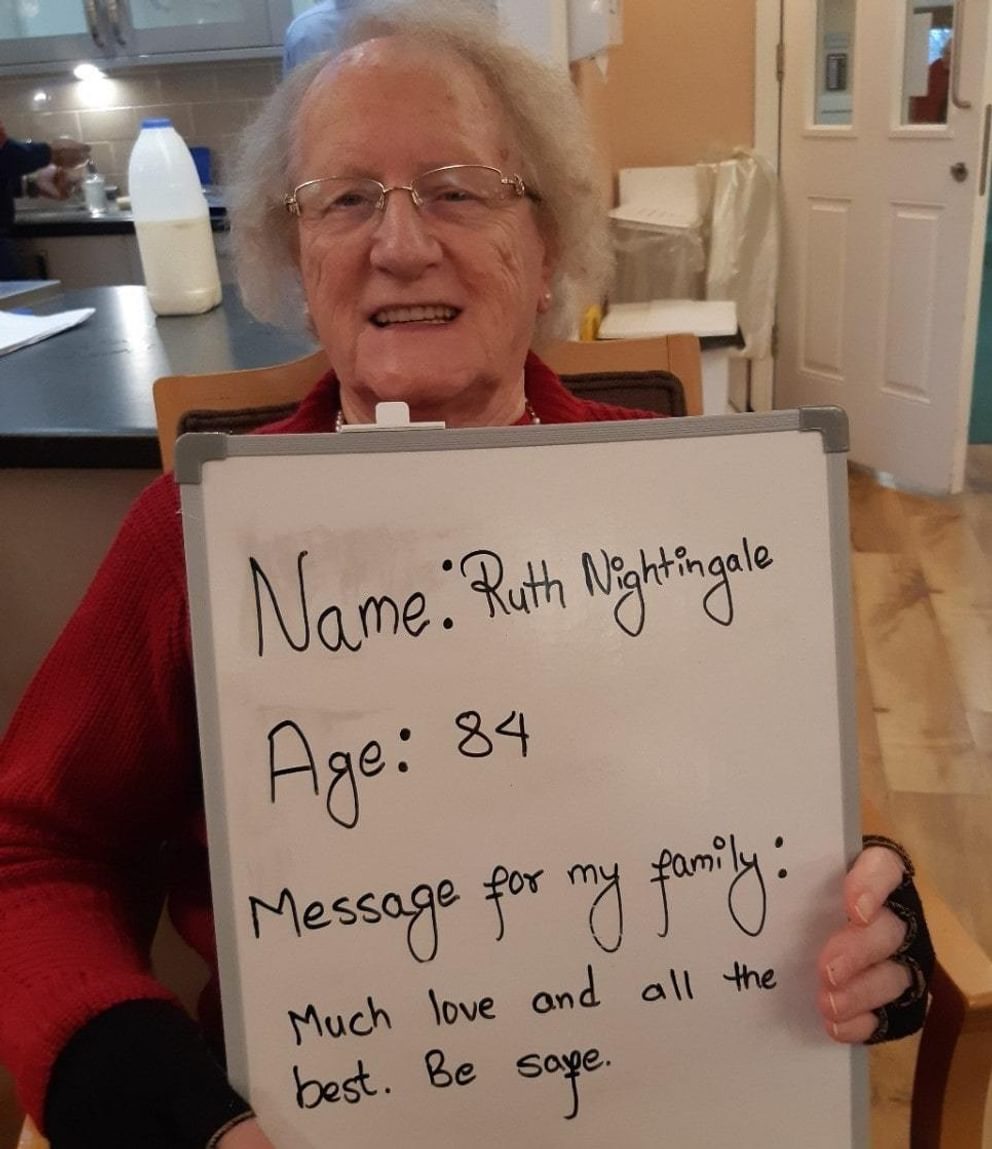 Name: Ruth Nightingale
Age: 84
Message for my family:
Much love and all the
best. Be safe.